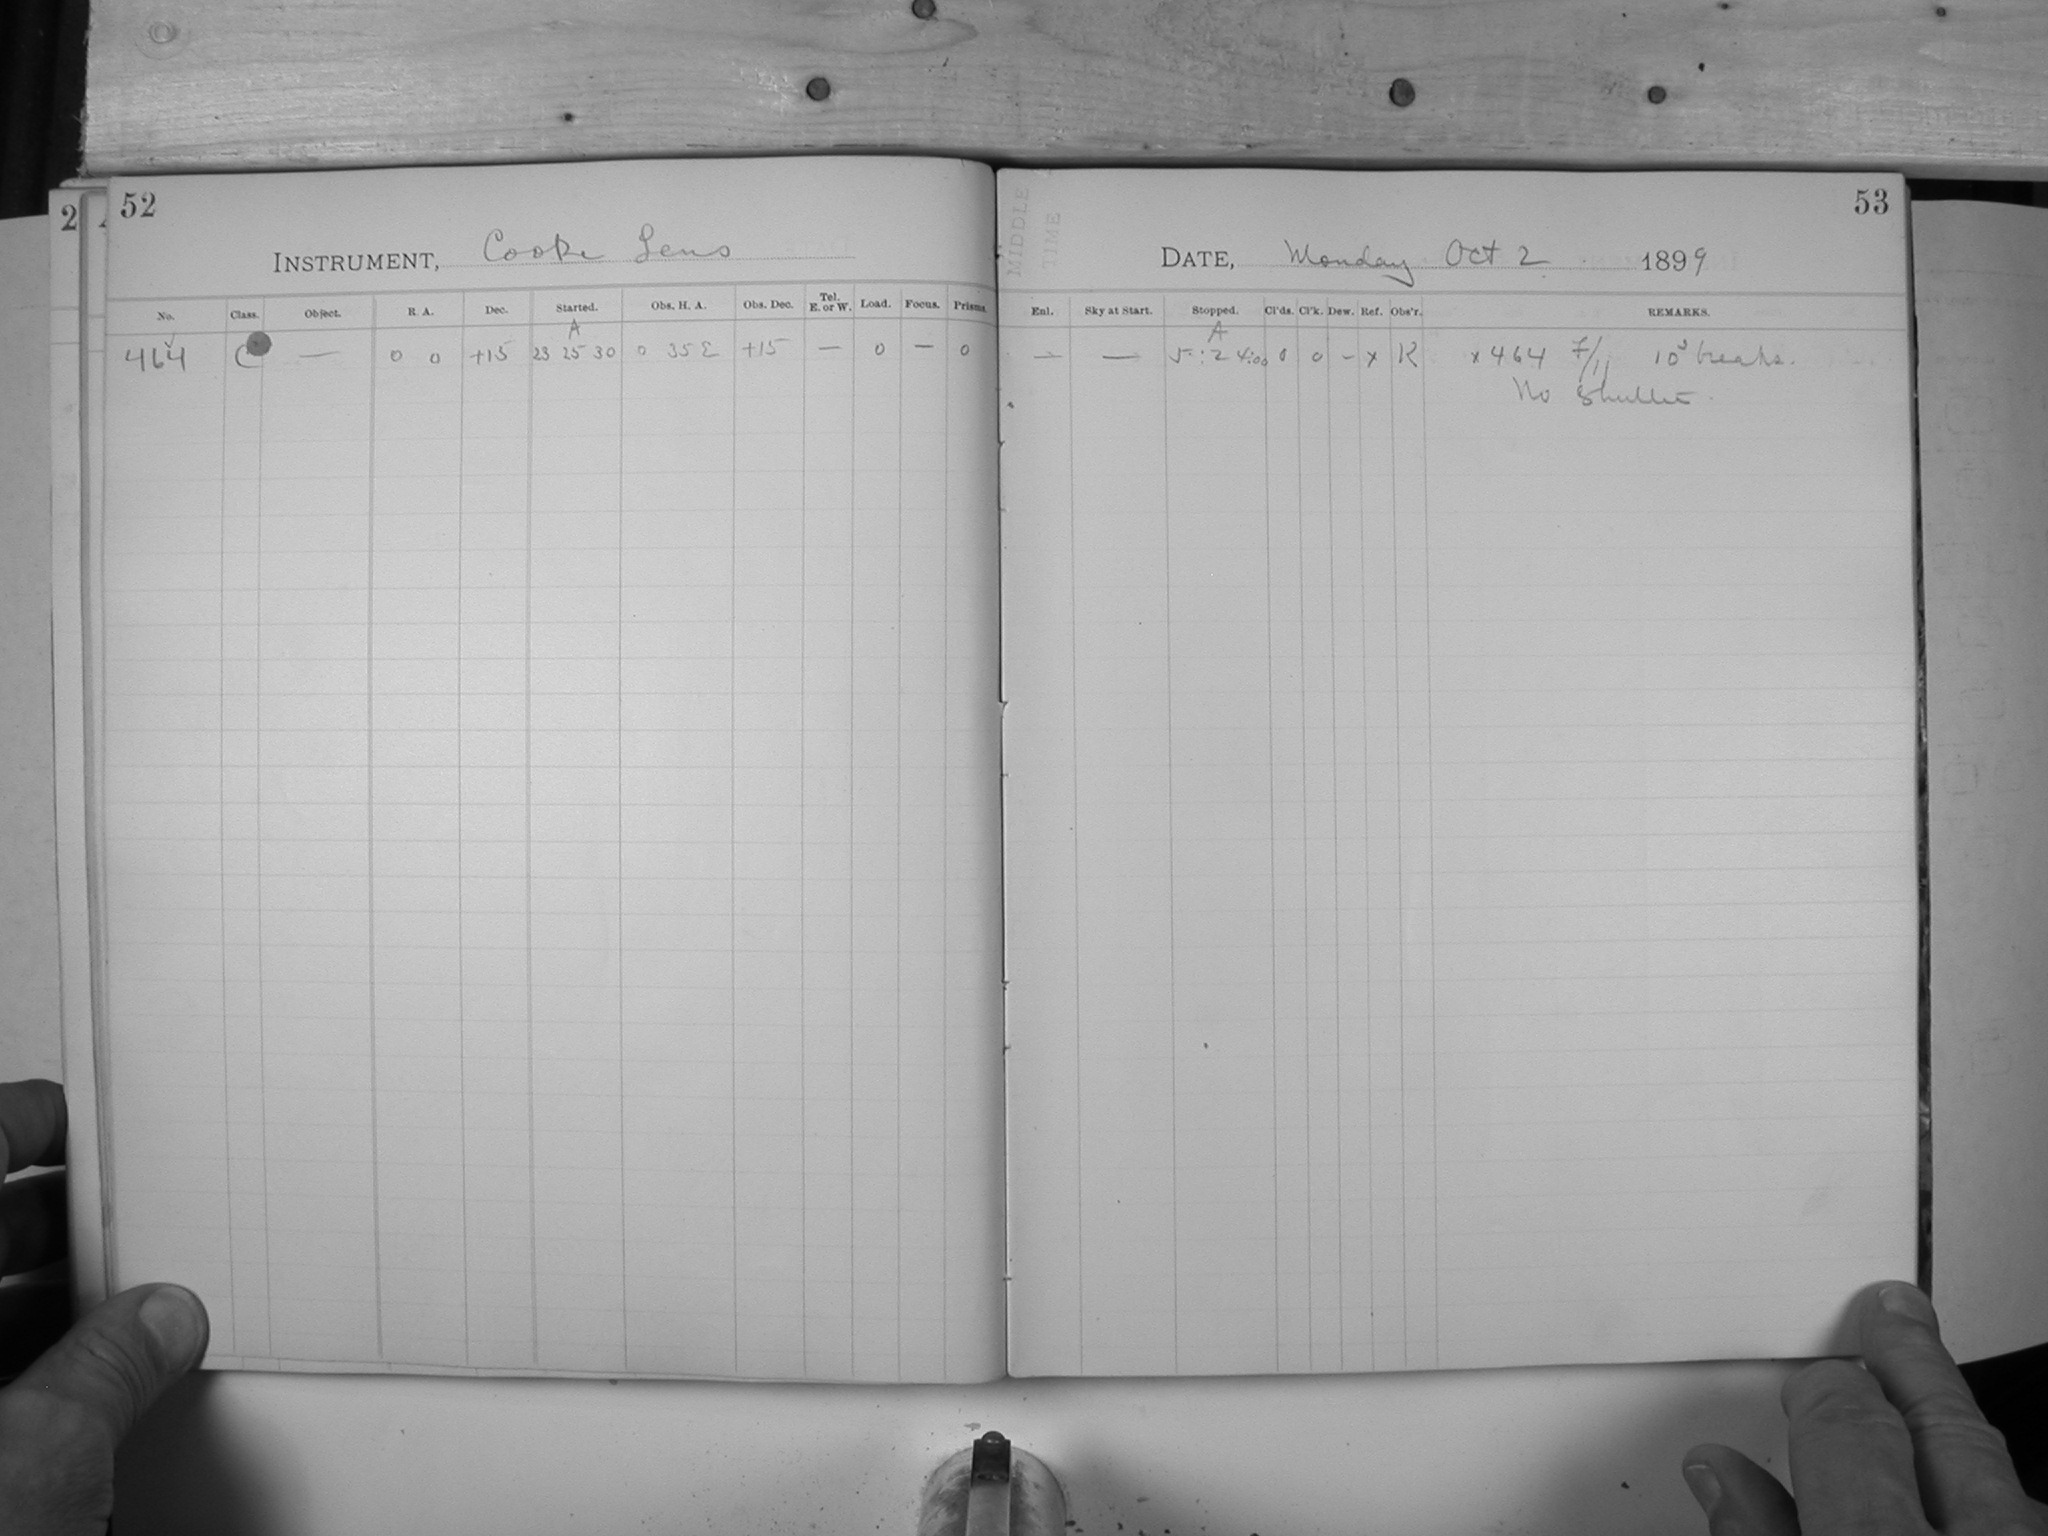 2
52
INSTRUMENT, Cooke Lens
No. Class. Object. R. A. Dec. Started. Obs. H. A. Obs. Dec. Tel. E. or W. Load. Focus. Prisms.
A
464 C — 0 0 +15 23 25 30 0 35 E +15 — 0 — 0
53
MIDDLE
TIME
DATE, Monday Oct 2 1899
Enl. Sky at Start. Stopped. Cl'ds. Cl'k. Dew. Ref. Obs'r. REMARKS.
A
— — 5 : 24:00 0 0 - x K x 464 F/11 10s breaks.
No Shutter.